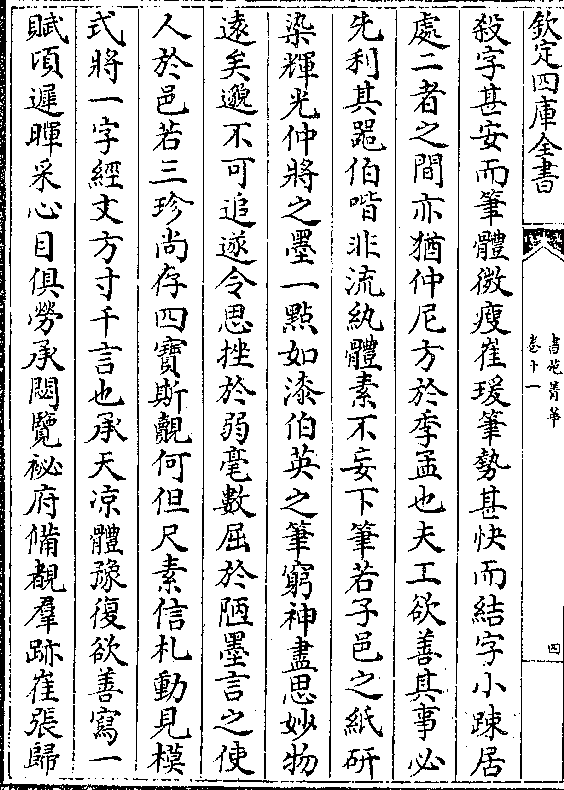 欽定四庫全書
書苑菁華
卷十一
四
殺字甚安而筆體微瘦崔瑗筆勢甚快而結字小踈居
處二者之間亦猶仲尼方於季孟也夫工欲善其事必
先利其噐伯喈非流紈體素不妄下筆若子邑之紙研
染輝光仲將之墨一點如漆伯英之筆窮神盡思妙物
逺矣邈不可追遂令思挫於弱毫數屈於陋墨言之使
人於邑若三珍尚存四寶斯覿何但尺素信札動見模
式將一字經丈方寸千言也承天凉體豫復欲善寫一
賦傾遲暉采心目俱勞承閲覽祕府備覩羣跡崔張歸